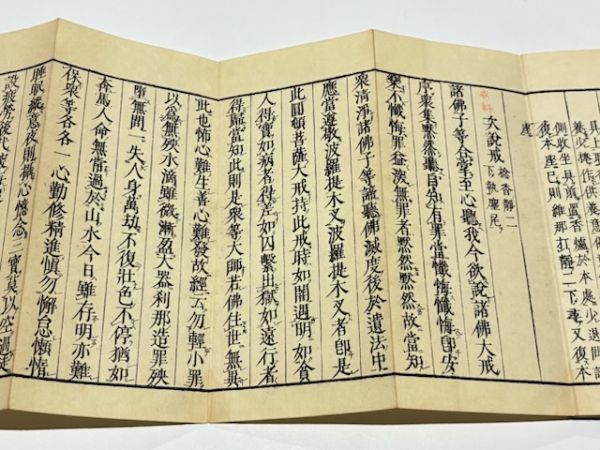 具上聖
義少揖作供養意
側収坐具前置香爐於本處少退問訊
復本座已則維那打靜一下之又復本
座
次説戒 捻香靜二下執塵尾
諸佛子等合掌至心聽我今欲説諸佛大戒
序衆集默然聽自知有罪當懺悔懺悔卽安
樂不懺悔罪益深無罪者默然默然故當知
衆清淨諸佛子等諦聽佛滅度後於遺法中
應當遵敬波羅提木叉波羅提木叉者卽是
此圓頓菩薩大戒持此戒時如闇遇明如貧
人得寶如病者得差如囚繫出獄如遠行者
得歸當知此則是衆等大師若佛住世無異
此也怖心難生善心難發故經云勿輕小罪
以爲無殃水滴雖微漸盈大器刹那造罪殃
墮無間一失人身萬劫不復壯色不停猶如
奔馬人命無常過於山水今日雖存明亦難
保衆等各各一心勤修精進愼勿懈怠懶惰
睡眠縱意夜則攝心憶念三寶莫以空過
設疲勞後代